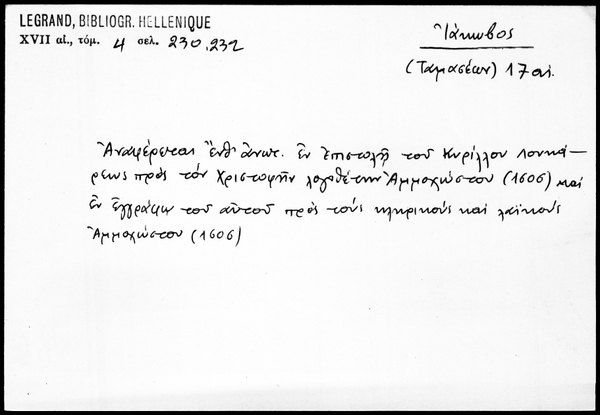 LEGRAND, BIBLIOGR. HELLENIQUE
XVII αἰ., τόμ. 4 σελ. 230, 232
Ἰάκωβος
(Ταμασέων) 17 αἰ.
Ἀναφέρεται ἔνθ' ἄνωτ. ἐν ἐπιστολῇ τοῦ Κυρίλλου Λουκά-
ρεως πρὸς τὸν Χριστοφῆν λογοθέτην Ἀμμοχώστου (1606) καί
ἐν ἐγγράφῳ τοῦ αὐτοῦ πρὸς τοὺς κληρικούς καί λαϊκούς
Ἀμμοχώστου (1606)